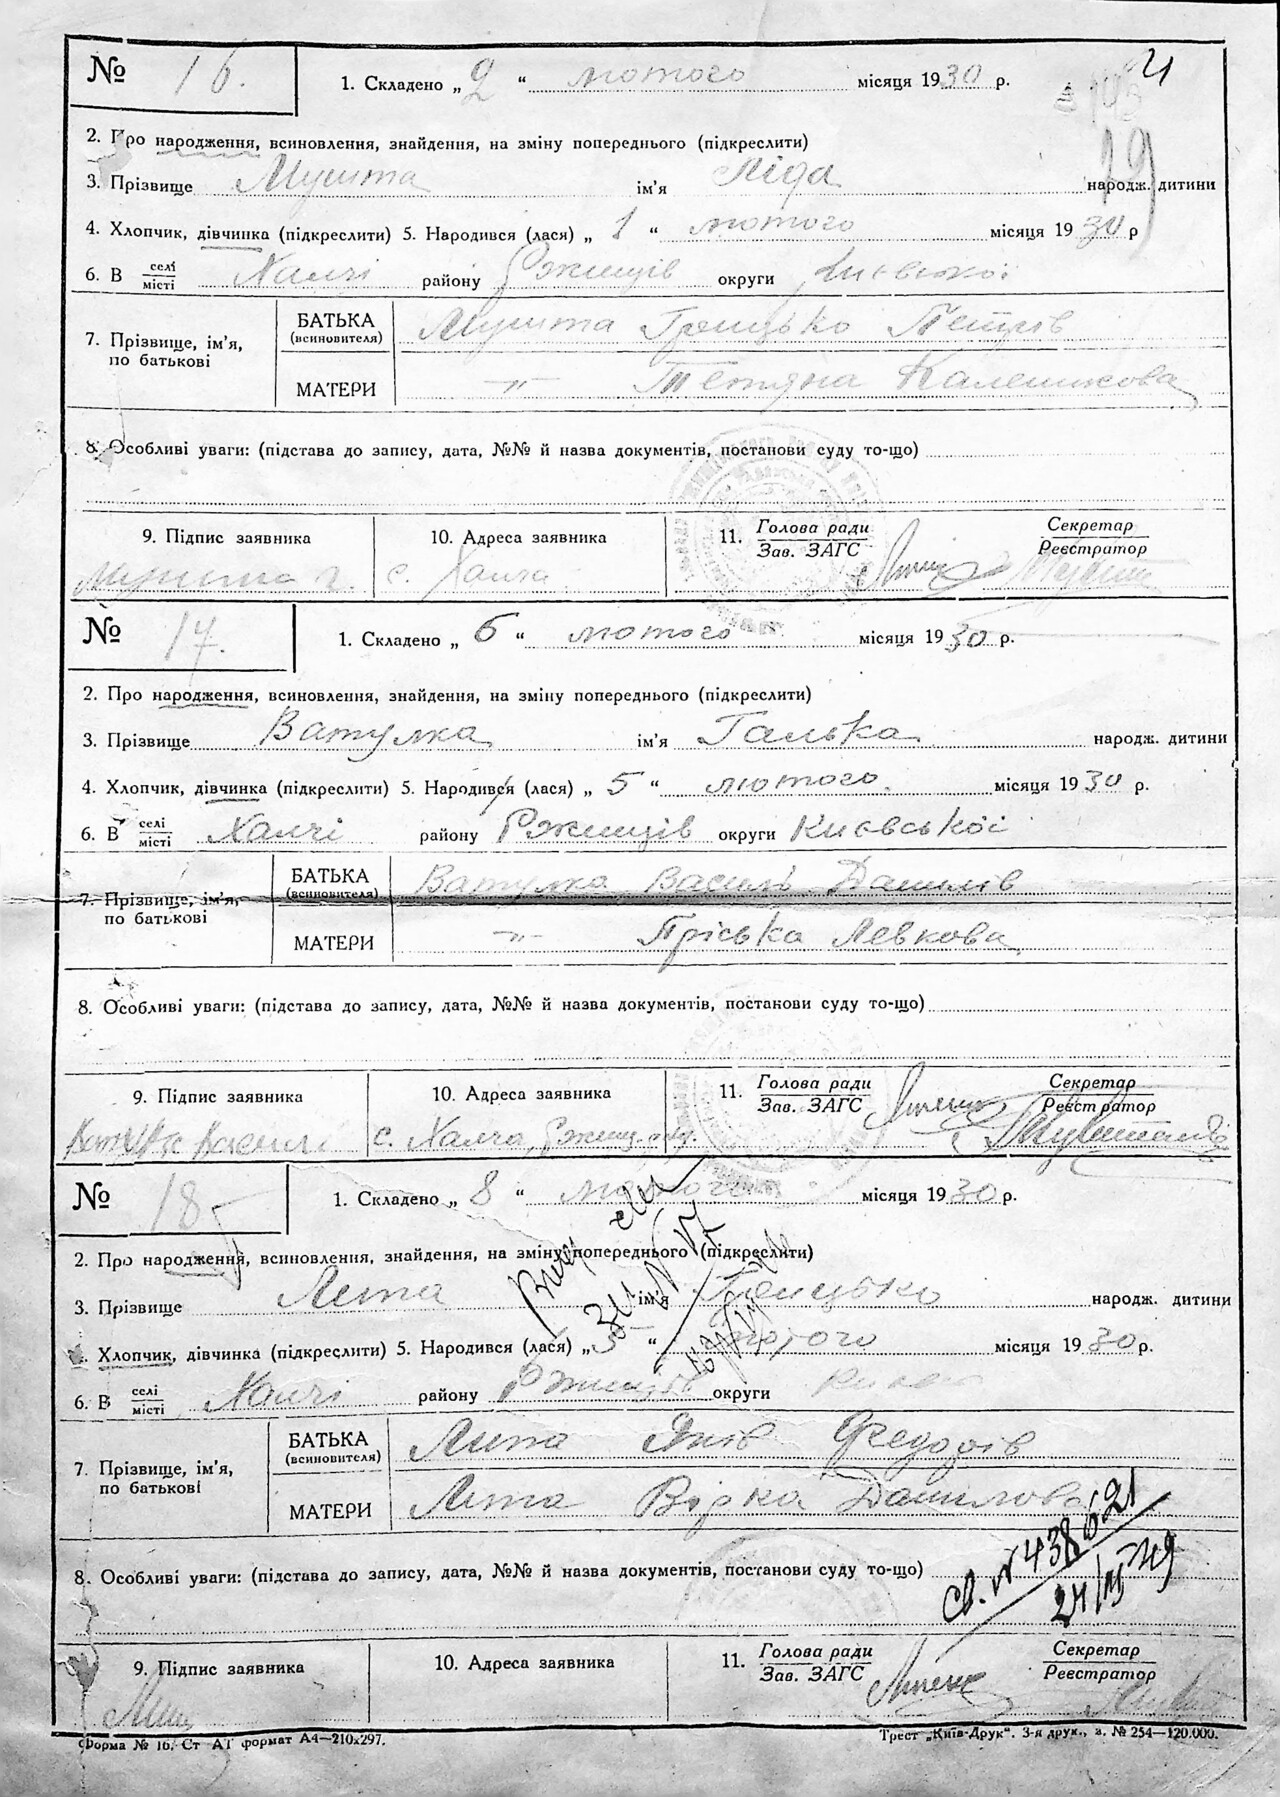 21
29
№ 16. 1. Складено „ 2 “ лютого місяця 1930 р.
2. Про народження, всиновлення, знайдення, на зміну попереднього (підкреслити)
3. Прізвище Мушта ім'я Ліда народж. дитини
4. Хлопчик, дівчинка (підкреслити) 5. Народився (лася) „ 1 “ лютого місяця 1930 р
6. В селі місті Халчі району Ржищів округи Київської
7. Прізвище, ім'я, по батькові БАТЬКА (всиновителя) Мушта Грицько Петрів
МАТЕРИ —„— Тетяна Каленикова
8. Особливі уваги: (підстава до запису, дата, №№ й назва документів, постанови суду то-що)
9. Підпис заявника 10. Адреса заявника 11. Голова ради Зав. ЗАГС Секретар Реєстратор
Мушта Г. с. Халча
№ 17. 1. Складено „ 6 “ лютого місяця 1930 р.
2. Про народження, всиновлення, знайдення, на зміну попереднього (підкреслити)
3. Прізвище Ватулка ім'я Галька народж. дитини
4. Хлопчик, дівчинка (підкреслити) 5. Народився (лася) „ 5 “ лютого місяця 1930 р.
6. В селі місті Халчі району Ржищів округи Києвської
7. Прізвище, ім'я, по батькові БАТЬКА (всиновителя) Ватулка Василь Данилів
МАТЕРИ —„— Пріська Левкова
8. Особливі уваги: (підстава до запису, дата, №№ й назва документів, постанови суду то-що)
9. Підпис заявника 10. Адреса заявника 11. Голова ради Зав. ЗАГС Секретар Реєстратор
Ватулка Василь с. Халча
№ 18 1. Складено „ 8 “ лютого місяця 1930 р.
2. Про народження, всиновлення, знайдення, на зміну попереднього (підкреслити)
3. Прізвище Лета ім'я Грицько народж. дитини
4. Хлопчик, дівчинка (підкреслити) 5. Народився (лася) „ 5 “ лютого місяця 1930 р.
6. В селі місті Халчі району Ржищів округи Києв
7. Прізвище, ім'я, по батькові БАТЬКА (всиновителя) Лета Яків Федорів
МАТЕРИ Лета Вірка Данилова
св. № 438621
24/III 49
8. Особливі уваги: (підстава до запису, дата, №№ й назва документів, постанови суду то-що)
9. Підпис заявника 10. Адреса заявника 11. Голова ради Зав. ЗАГС Секретар Реєстратор
Форма № 16. Ст АТ формат А4—210х297. Трест „Київ-Друк“. 3-я друк., з. № 254—120.000.